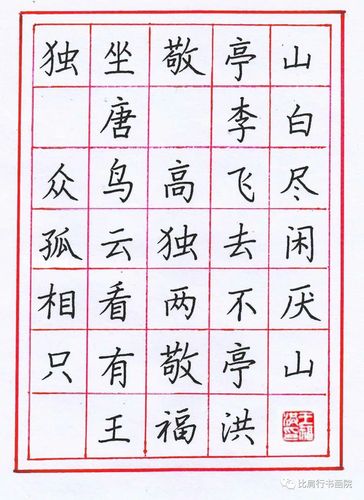 独坐敬亭山
唐李白
众鸟高飞尽
孤云独去闲
相看两不厌
只有敬亭山
王福洪
比肩行书画院